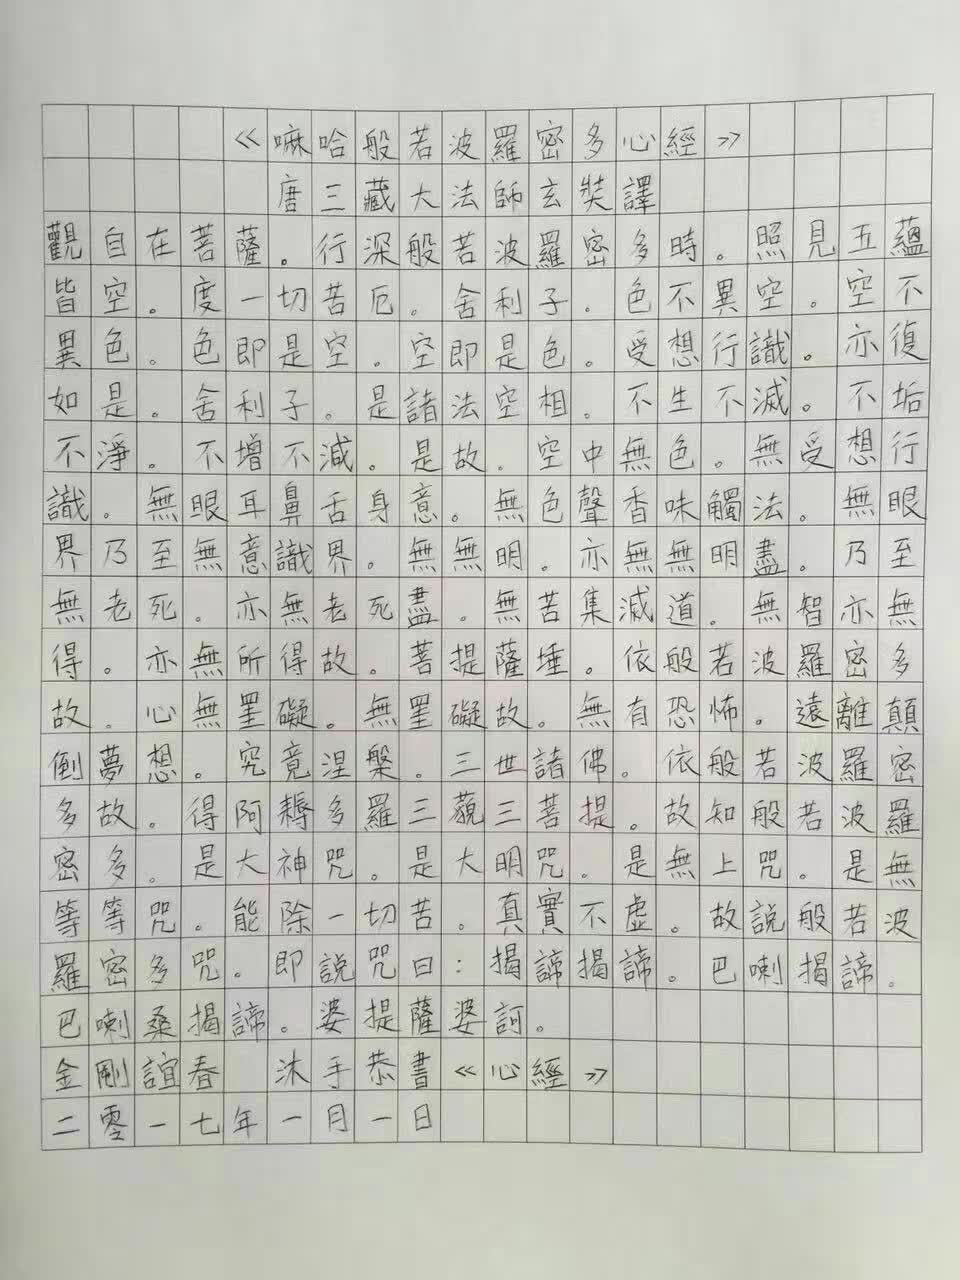 《嘛哈般若波羅密多心經》
唐三藏大法師玄奘譯
觀自在菩薩。行深般若波羅密多時。照見五蘊
皆空。度一切苦厄。舍利子。色不異空。空不
異色。色即是空。空即是色。受想行識。亦復
如是。舍利子。是諸法空相。不生不滅。不垢
不淨。不增不減。是故。空中無色。無受想行
識。無眼耳鼻舌身意。無色聲香味觸法。無眼
界乃至無意識界。無無明。亦無無明盡。乃至
無老死。亦無老死盡。無苦集滅道。無智亦無
得。亦無所得故。菩提薩埵。依般若波羅密多
故。心無罣礙。無罣礙故。無有恐怖。遠離顛
倒夢想。究竟涅槃。三世諸佛。依般若波羅密
多故。得阿耨多羅三藐三菩提。故知般若波羅
密多。是大神咒。是大明咒。是無上咒。是無
等等咒。能除一切苦。真實不虛。故說般若波
羅密多咒。即說咒曰:揭諦揭諦。巴喇揭諦。
巴喇桑揭諦。婆提薩婆訶。
金剛誼春 沐手恭書《心經》
二零一七年一月一日